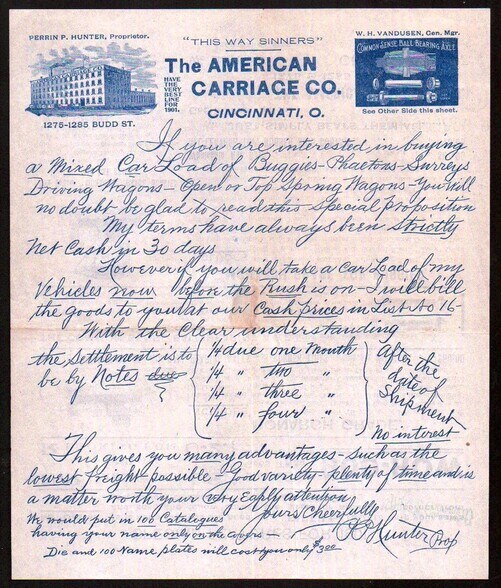 PERRIN P. HUNTER, Proprietor.
"THIS WAY SINNERS"
W. H. VANDUSEN, Gen. Mgr.
COMMON SENSE BALL BEARING AXLE
The AMERICAN
CARRIAGE CO.
HAVE
THE
VERY
BEST
LINE
FOR
1901.
CINCINNATI, O.
1275-1285 BUDD ST.
See Other Side this sheet.
If you are interested in buying
a Mixed Car Load of Buggies - Phaetons - Surreys
Driving Wagons - Open or Top Spring Wagons - You will
no doubt be glad to read this Special Proposition
My terms have always been Strictly
Net Cash in 30 days
However if you will take a Car Load of my
Vehicles now before the Rush is on - I will bill
the goods to you at our Cash prices in List No 16 -
With the Clear understanding
the Settlement is to
be by Notes due
1/4 due one Month
1/4 " two "
1/4 " three "
1/4 " four "
After the
date of
Shipment
No interest
This gives you many advantages - such as the
lowest freight possible - Good variety - plenty of time and is
a matter worth your very Early attention
Yours Cheerfully
P P Hunter Prop
We would put in 100 Catalogues
having your name only on the covers -
Die and 100 Name plates will cost you only $3.00